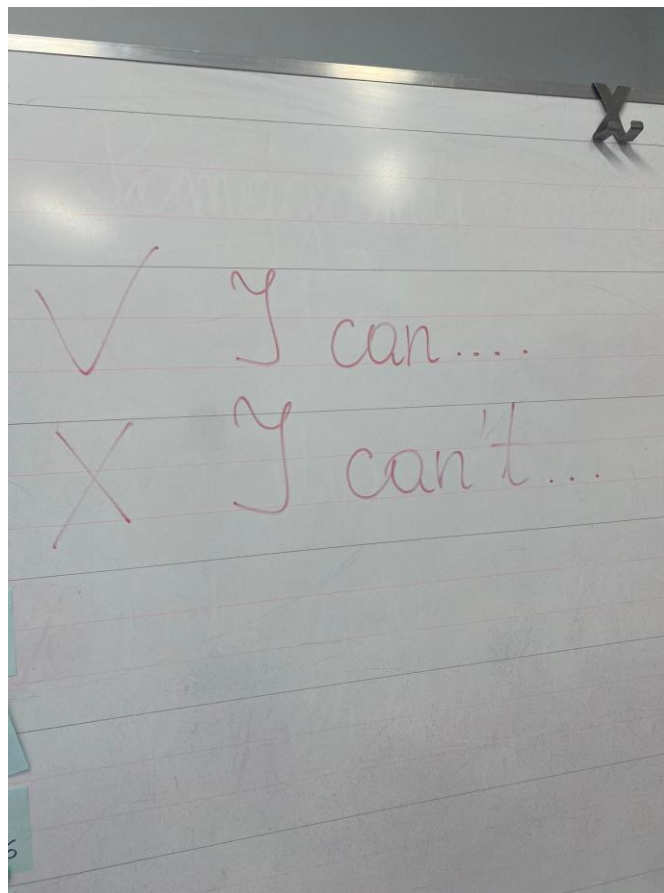 V I can....
X I can't...